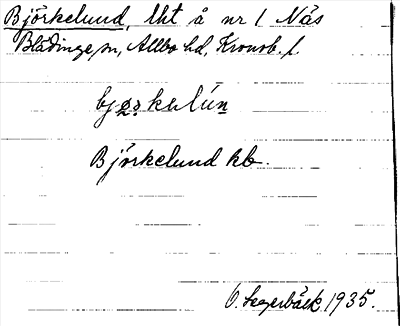 Björkelund, lht å nr 1 Näs
Blädinge sn, Allbo hd, Kronob. l.
bjørkelún
Björkelund kb.
O. Segerbäck 1935.